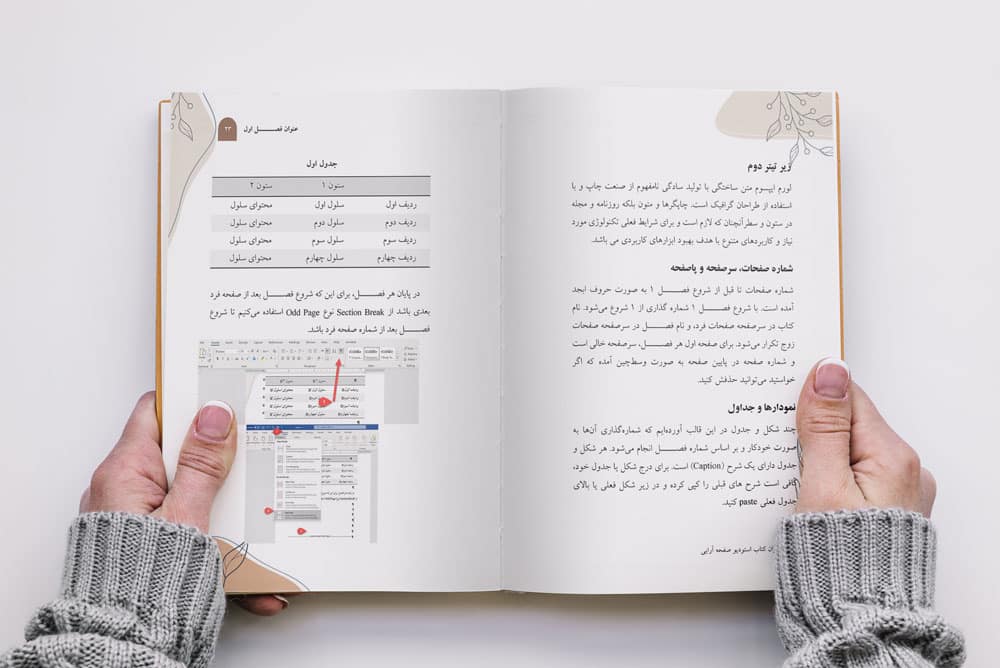 زیر تیتر دوم
لورم ایپسوم متن ساختگی با تولید سادگی نامفهوم از صنعت چاپ و با
استفاده از طراحان گرافیک است. چاپگرها و متون بلکه روزنامه و مجله
در ستون و سطرآنچنان که لازم است و برای شرایط فعلی تکنولوژی مورد
نیاز و کاربردهای متنوع با هدف بهبود ابزارهای کاربردی می باشد.
شماره صفحات، سرصفحه و پاصفحه
شماره صفحات تا قبل از شروع فصل ۱ به صورت حروف ابجد
آمده است. با شروع فصل ۱ شماره گذاری از ۱ شروع می‌شود. نام
کتاب در سرصفحه صفحات فرد، و نام فصل در سرصفحه صفحات
زوج تکرار می‌شود. برای صفحه اول هر فصل، سرصفحه خالی است
و شماره صفحه در پایین صفحه به صورت وسطچین آمده که اگر
خواستید می‌توانید حذفش کنید.
نمودارها و جداول
چند شکل و جدول در این قالب آورده‌ایم که شماره‌گذاری آن‌ها به
صورت خودکار و بر اساس شماره فصل انجام می‌شود. هر شکل و
جدول دارای یک شرح (Caption) است. برای درج شکل یا جدول خود،
کافی است شرح های قبلی را کپی کرده و در زیر شکل فعلی یا بالای
جدول فعلی paste کنید.
کتاب استودیو صفحه آرایی
عنوان فصل اول ۲۳
جدول اول
ستون ۱ ستون ۲
ردیف اول سلول اول محتوای سلول
ردیف دوم سلول دوم محتوای سلول
ردیف سوم سلول سوم محتوای سلول
ردیف چهارم سلول چهارم محتوای سلول
در پایان هر فصل، برای این که شروع فصل بعد از صفحه فرد
بعدی باشد از Section Break نوع Odd Page استفاده می‌کنیم تا شروع
فصل بعد از شماره صفحه فرد باشد.